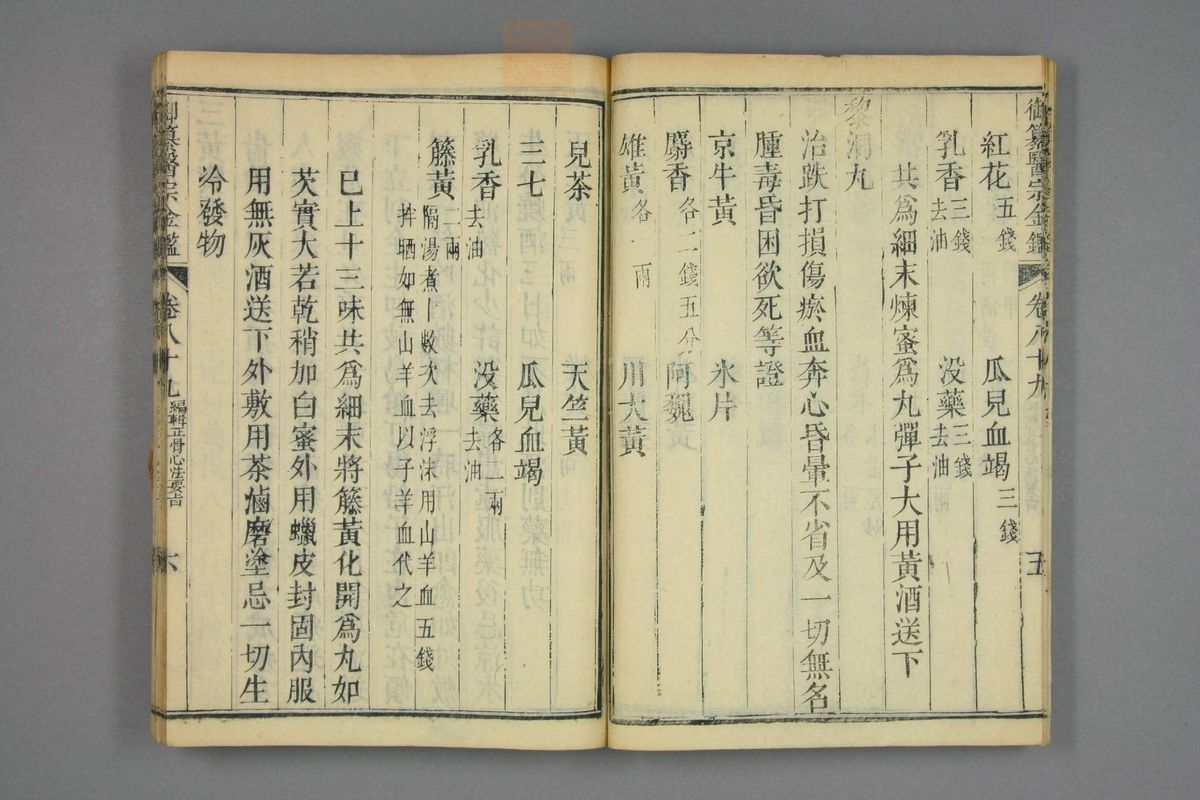 御纂醫宗金鑑 卷八十九 五
紅花五錢 瓜兒血竭三錢
乳香三錢去油 没藥三錢去油
共爲細末煉蜜爲丸彈子大用黃酒送下
黎洞丸
治跌打損傷瘀血奔心昏暈不省及一切無名
腫毒昏困欲死等證
京牛黃 氷片
麝香各二錢五分 阿魏
雄黃各一兩 川大黃
兒茶 天竺黃
三七 瓜兒血竭
乳香去油 没藥各二兩去油
籐黃二兩隔湯煮數次去浮沫用山羊血五錢
拌晒如無山羊血以子羊血代之
已上十三味共爲細末將籐黃化開爲丸如
芡實大若乾稍加白蜜外用蠟皮封固內服
用無灰酒送下外敷用茶滷磨塗忌一切生
冷發物
御纂醫宗金鑑 卷八十九 編輯正骨心法要旨 六